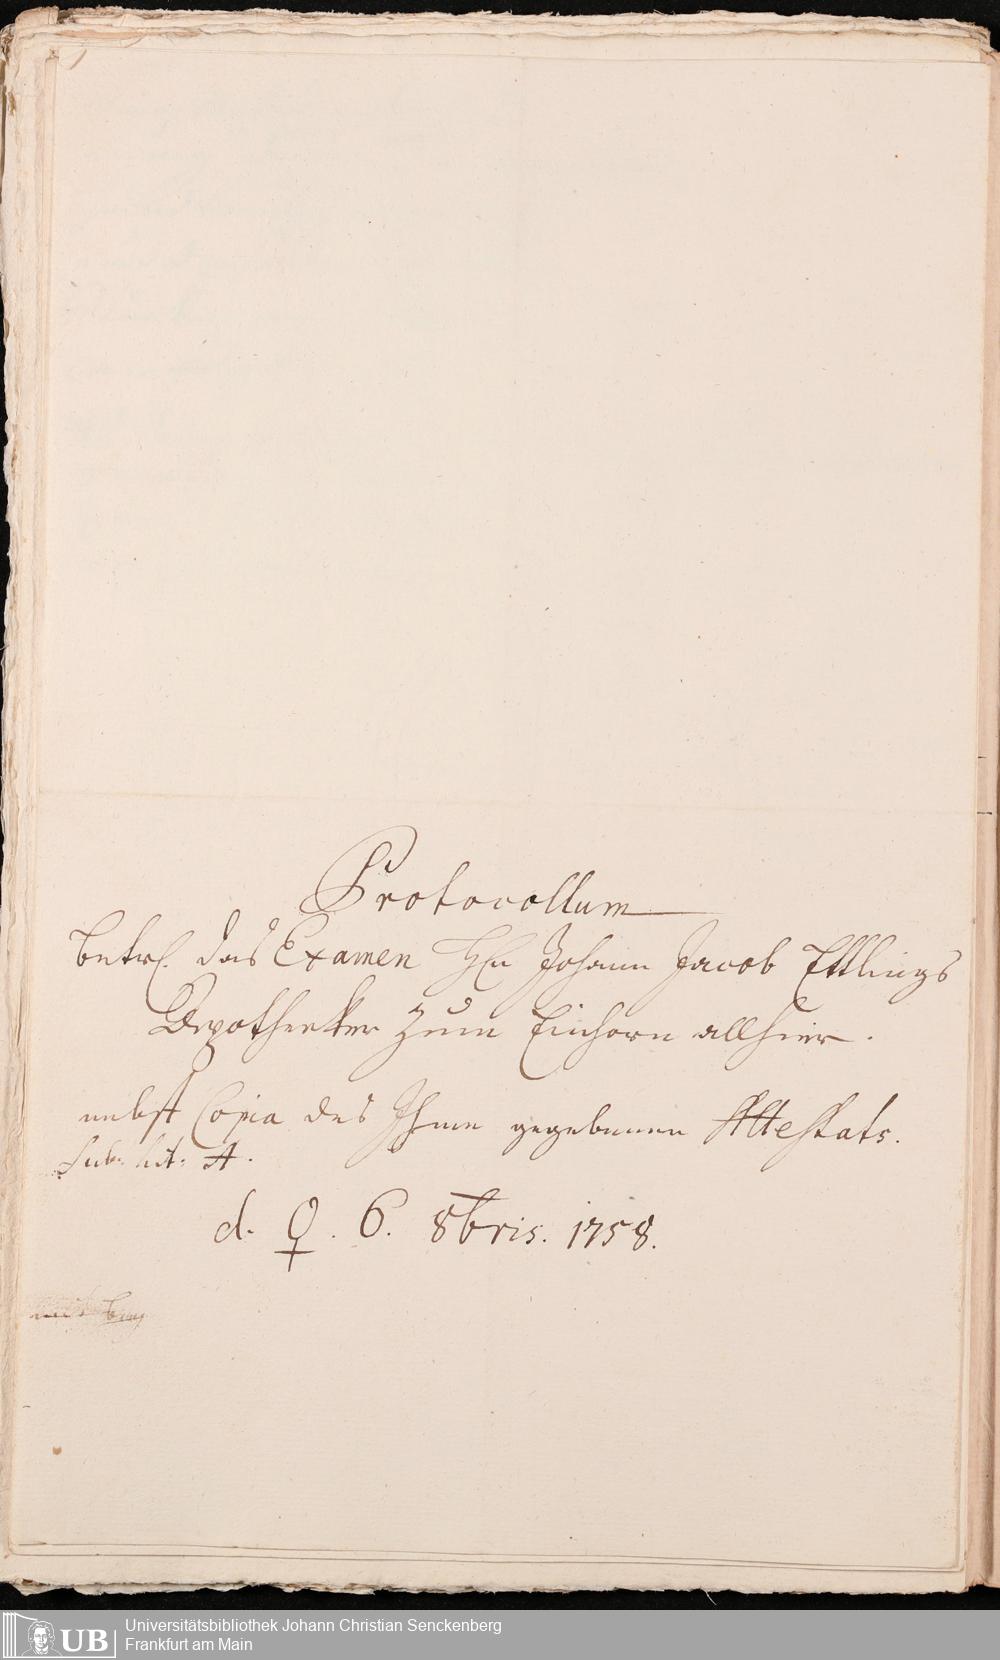 Protocollum
betrf. das Examen Hℓn Johann Jacob Ettlings
Apothecker zum Einhorn allhier.
nebst Copia des Ihme gegebenen Attestats.
sub. Lit: A.
d. ♀. 6. 8bris. 1758.
UB
Universitätsbibliothek Johann Christian Senckenberg
Frankfurt am Main